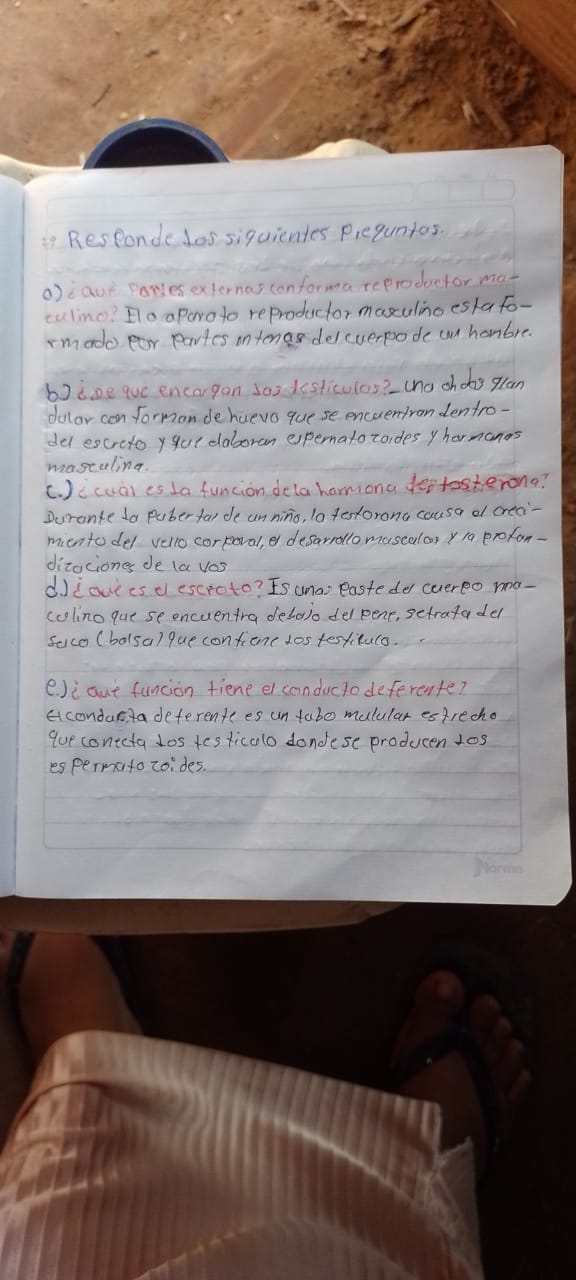 2.9 Responde los siguientes Preguntas.
a) ¿qué Partes externas conforma reproductor ma-
culino? El a aparato reproductor masculino esta fo-
rmado por partes intenas del cuerpo de un hombre.
b.) ¿De que encargan los testiculos? una de las glan
dular con forman de huevo que se encuentran dentro-
del escroto y que elaboran espermatozoides y hormonas
masculina.
c.) ¿cuál es la función de la hormona testosterona?
Durante la pubertad de un niño, la testorona causa al creci-
miento del vello corporal, el desarrollo muscular y la profun-
dizaciones de la vos
d.) ¿que es el escroto? Es unas Paste del cuerpo ma-
culino que se encuentra debajo del pene, setrata del
saco (bolsa) que contiene los testiculo.
e.) ¿qué función tiene el conducto deferente?
El conducta deferente es un tubo mulular estrecho
que conecta los testiculo donde se producen los
espermatozoides.
Norma